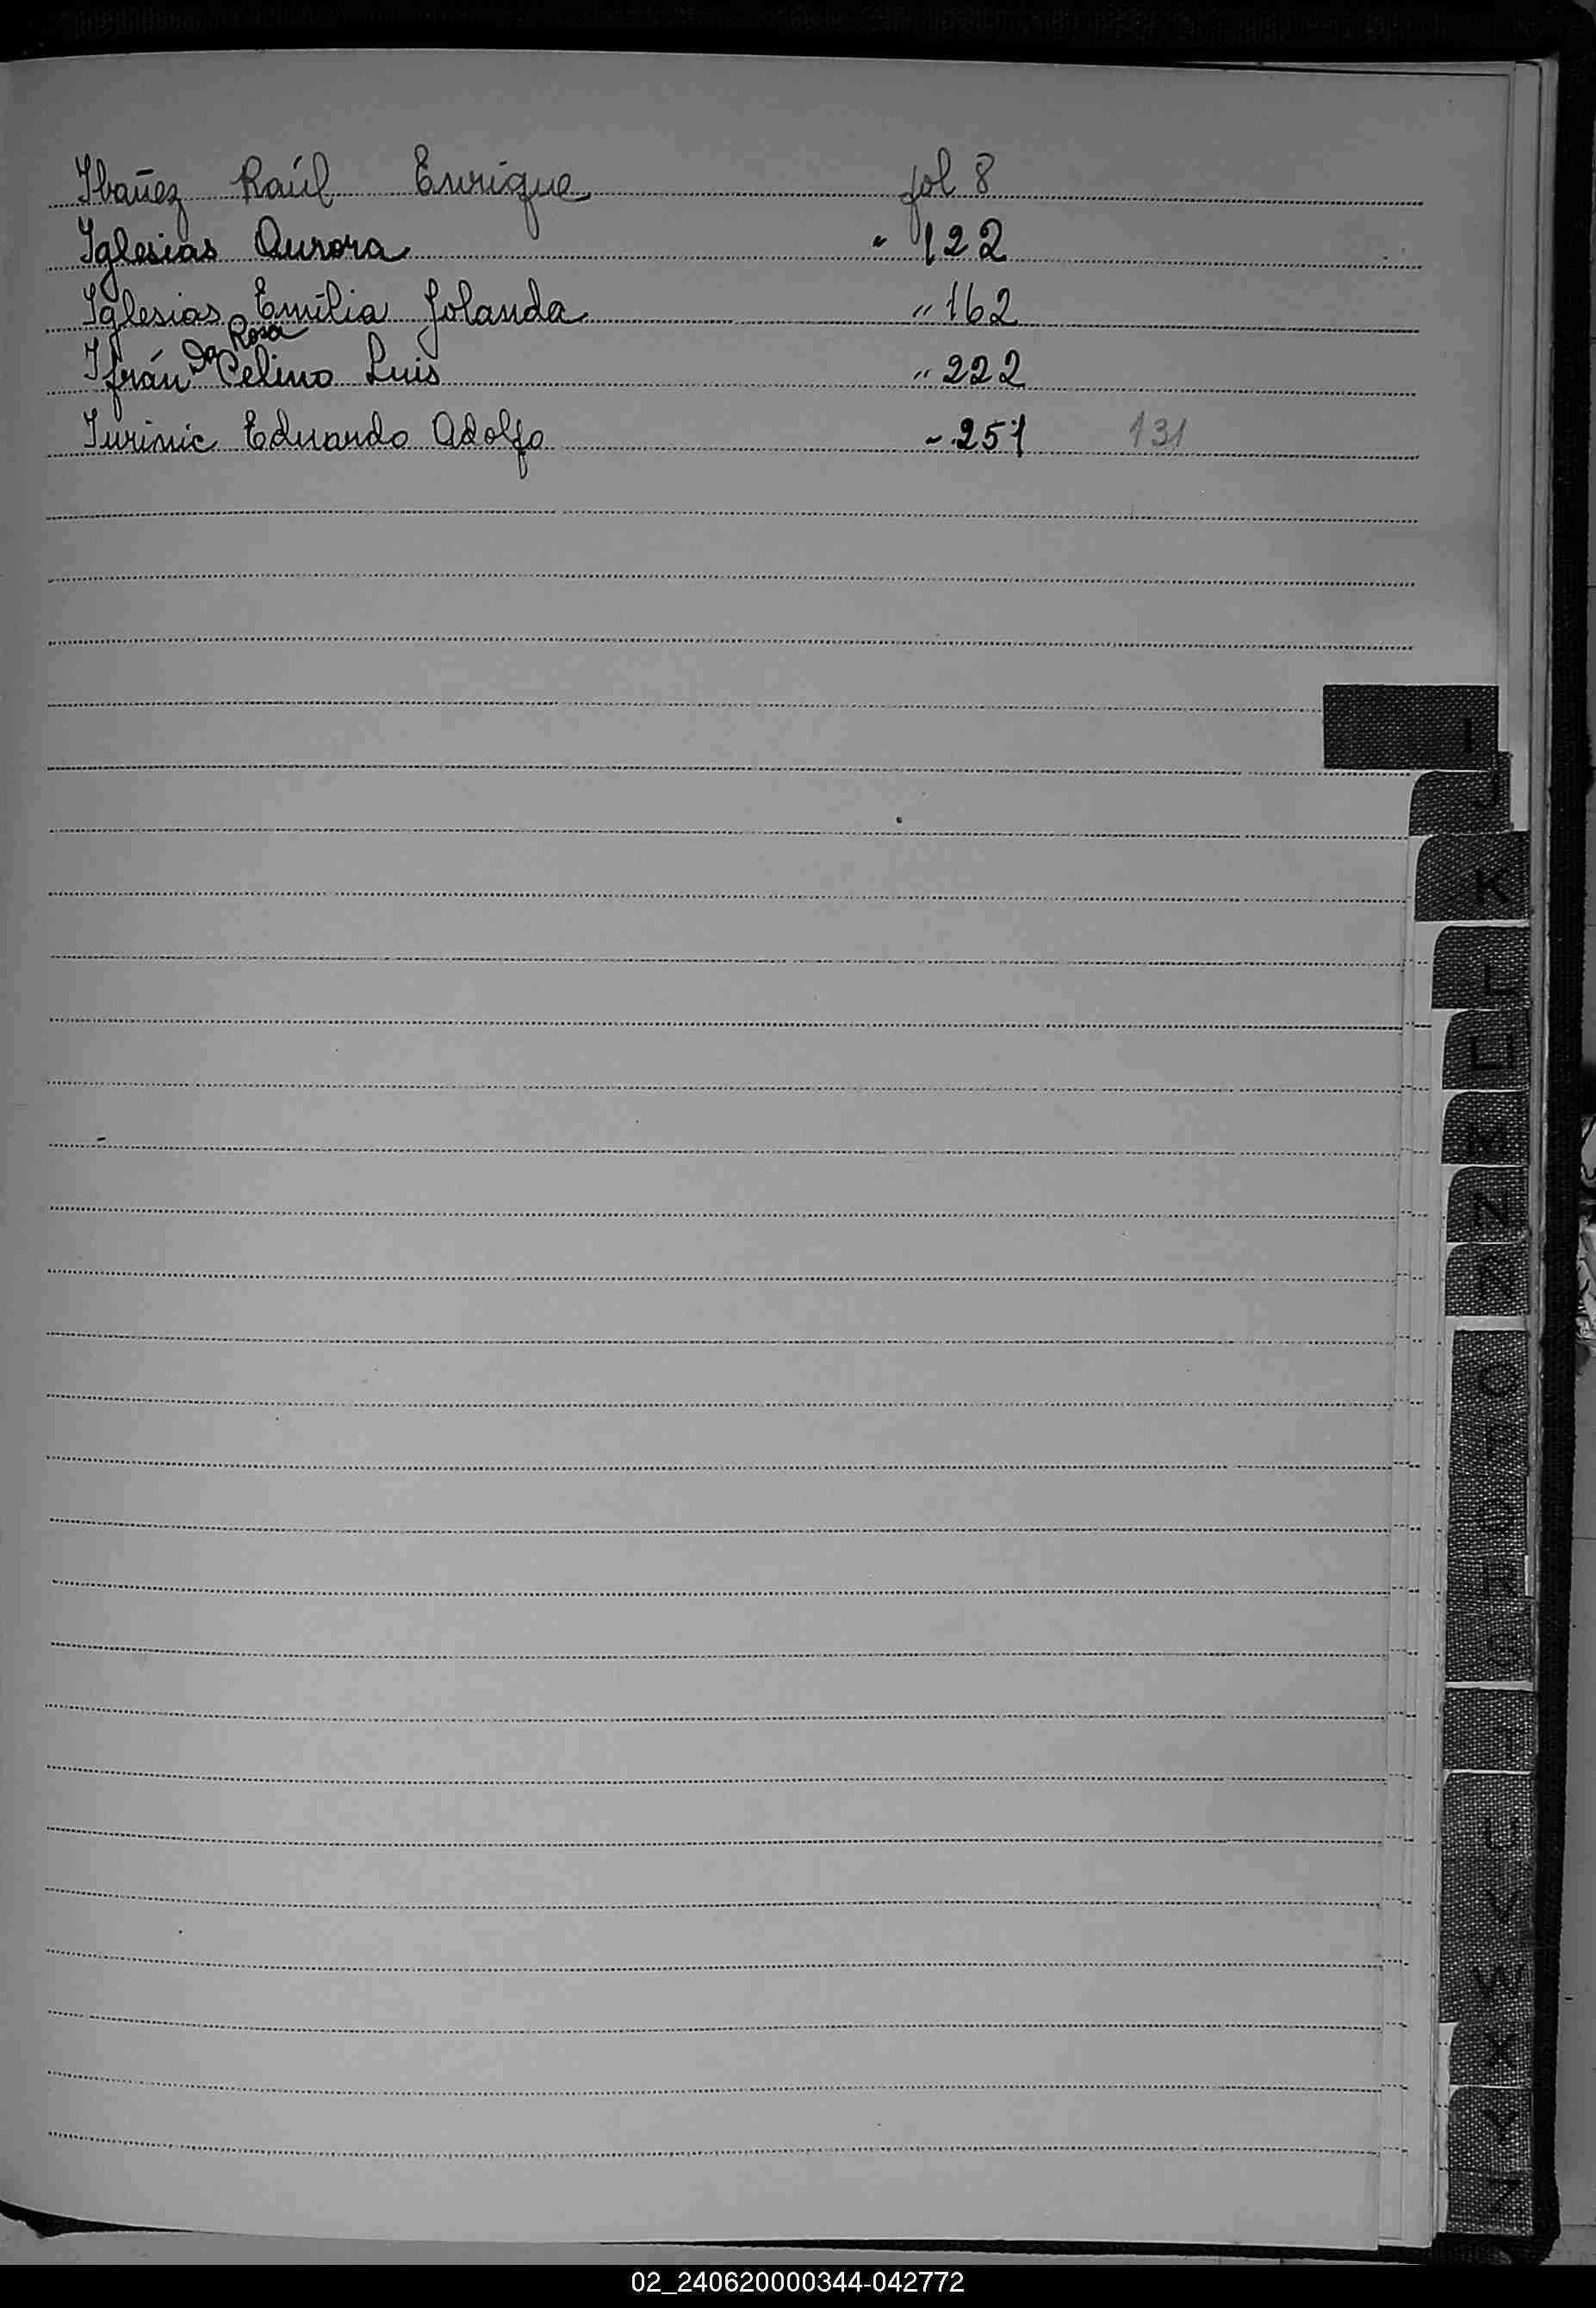 Ibañez Raúl Enrique fol 8
Iglesias Aurora " 122
Iglesias Emilia Jolanda " 162
Ifrán Da Rosa Celino Luis " 222
Iurinic Eduardo Adolfo " 251 131
I
J
K
L
LL
M
N
Ñ
O
P
Q
R
S
T
U
V
W
X
Y
Z
02_240620000344-042772